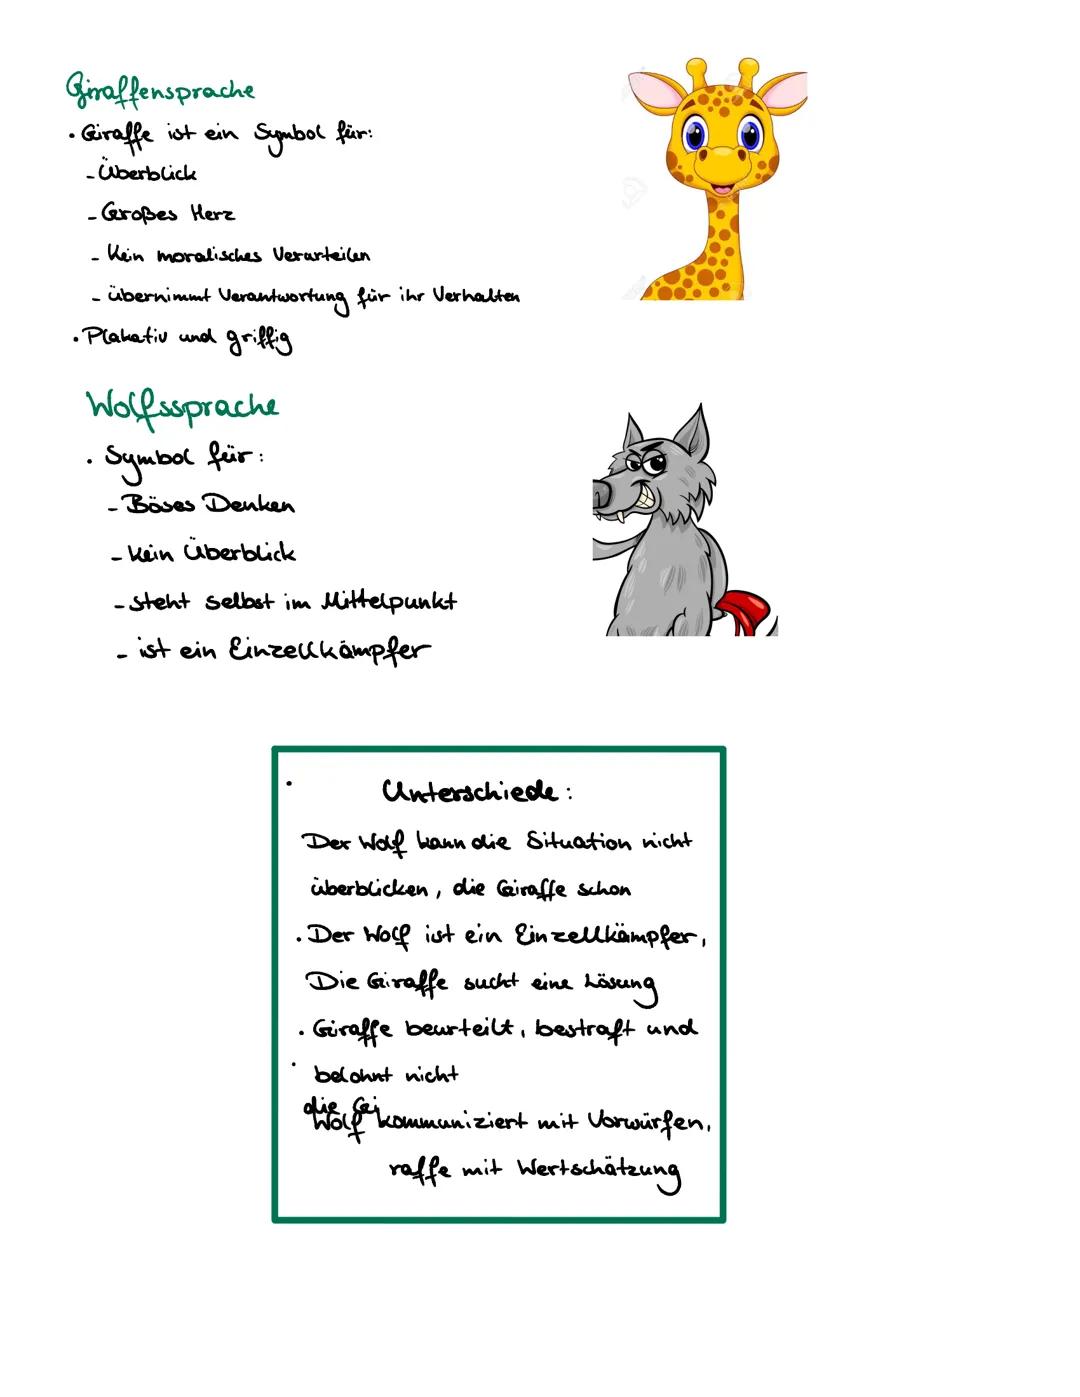 Giraffensprache
• Giraffe ist ein Symbol für:
- Überblick
- Großes Herz
- Kein moralisches Verurteilen
- übernimmt Verantwortung für ihr Verhalten
• Plakativ und griffig
Wolfssprache
• Symbol für:
- Böses Denken
- Kein Überblick
- steht selbst im Mittelpunkt
- ist ein Einzellkämpfer
• Unterschiede:
Der Wolf kann die Situation nicht
überblicken, die Giraffe schon
• Der Wolf ist ein Einzellkämpfer,
Die Giraffe sucht eine Lösung
• Giraffe beurteilt, bestraft und
• belohnt nicht
die Gi
Wolf kommuniziert mit Vorwürfen,
raffe mit Wertschätzung